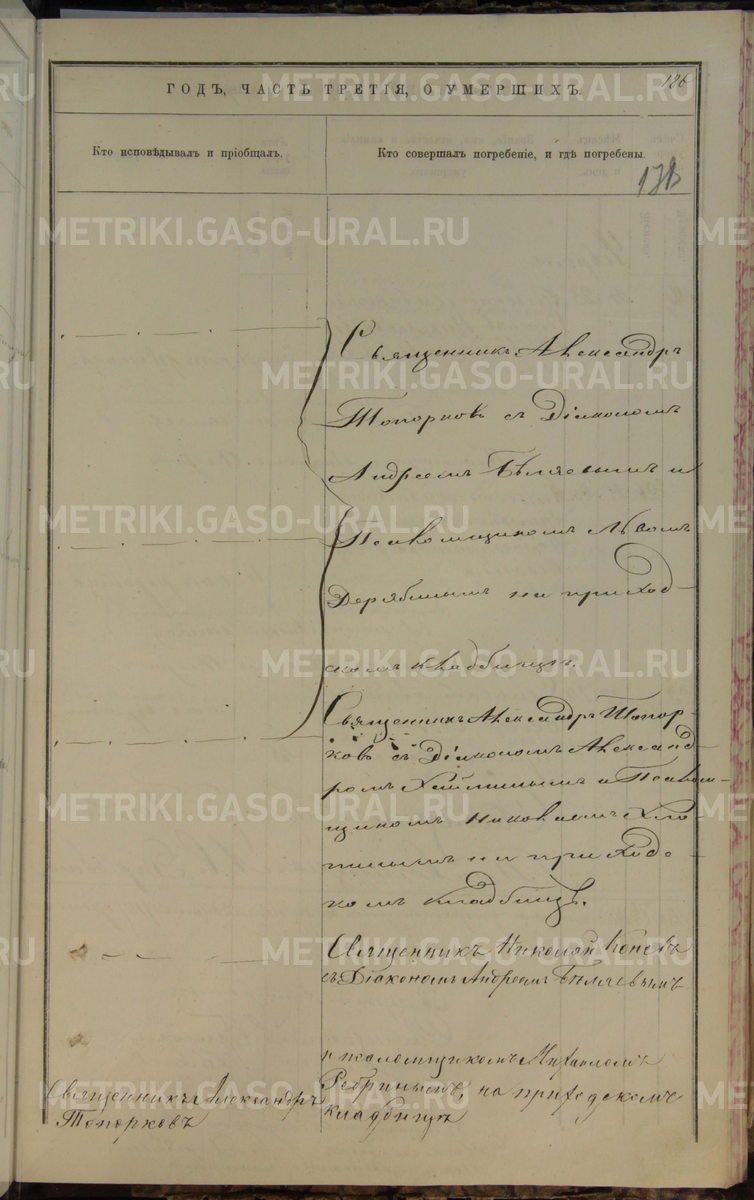 186
ГОДЪ, ЧАСТЬ ТРЕТІЯ, О УМЕРШИХЪ.
Кто исповѣдывалъ и пріобщалъ.
Кто совершалъ погребеніе, и гдѣ погребены.
Священникъ Александръ
Топорковъ съ Діакономъ
Андреемъ Бѣляевымъ и
Псаломщикомъ Львомъ
Дерябинымъ на приход-
скомъ кладбищѣ.
Священникъ Александръ Топор-
ковъ съ Діакономъ Александ-
ромъ Хлопинымъ и Псалом-
щикомъ Николаемъ Хло-
пинымъ на приходс-
комъ кладбищѣ.
Священникъ Николай
съ Діакономъ Андреемъ Бѣляевымъ
и псаломщикомъ Михаиломъ
на приходскомъ
кладбищѣ
Священникъ Александръ
Топорковъ
METRIKI.GASO-URAL.RU